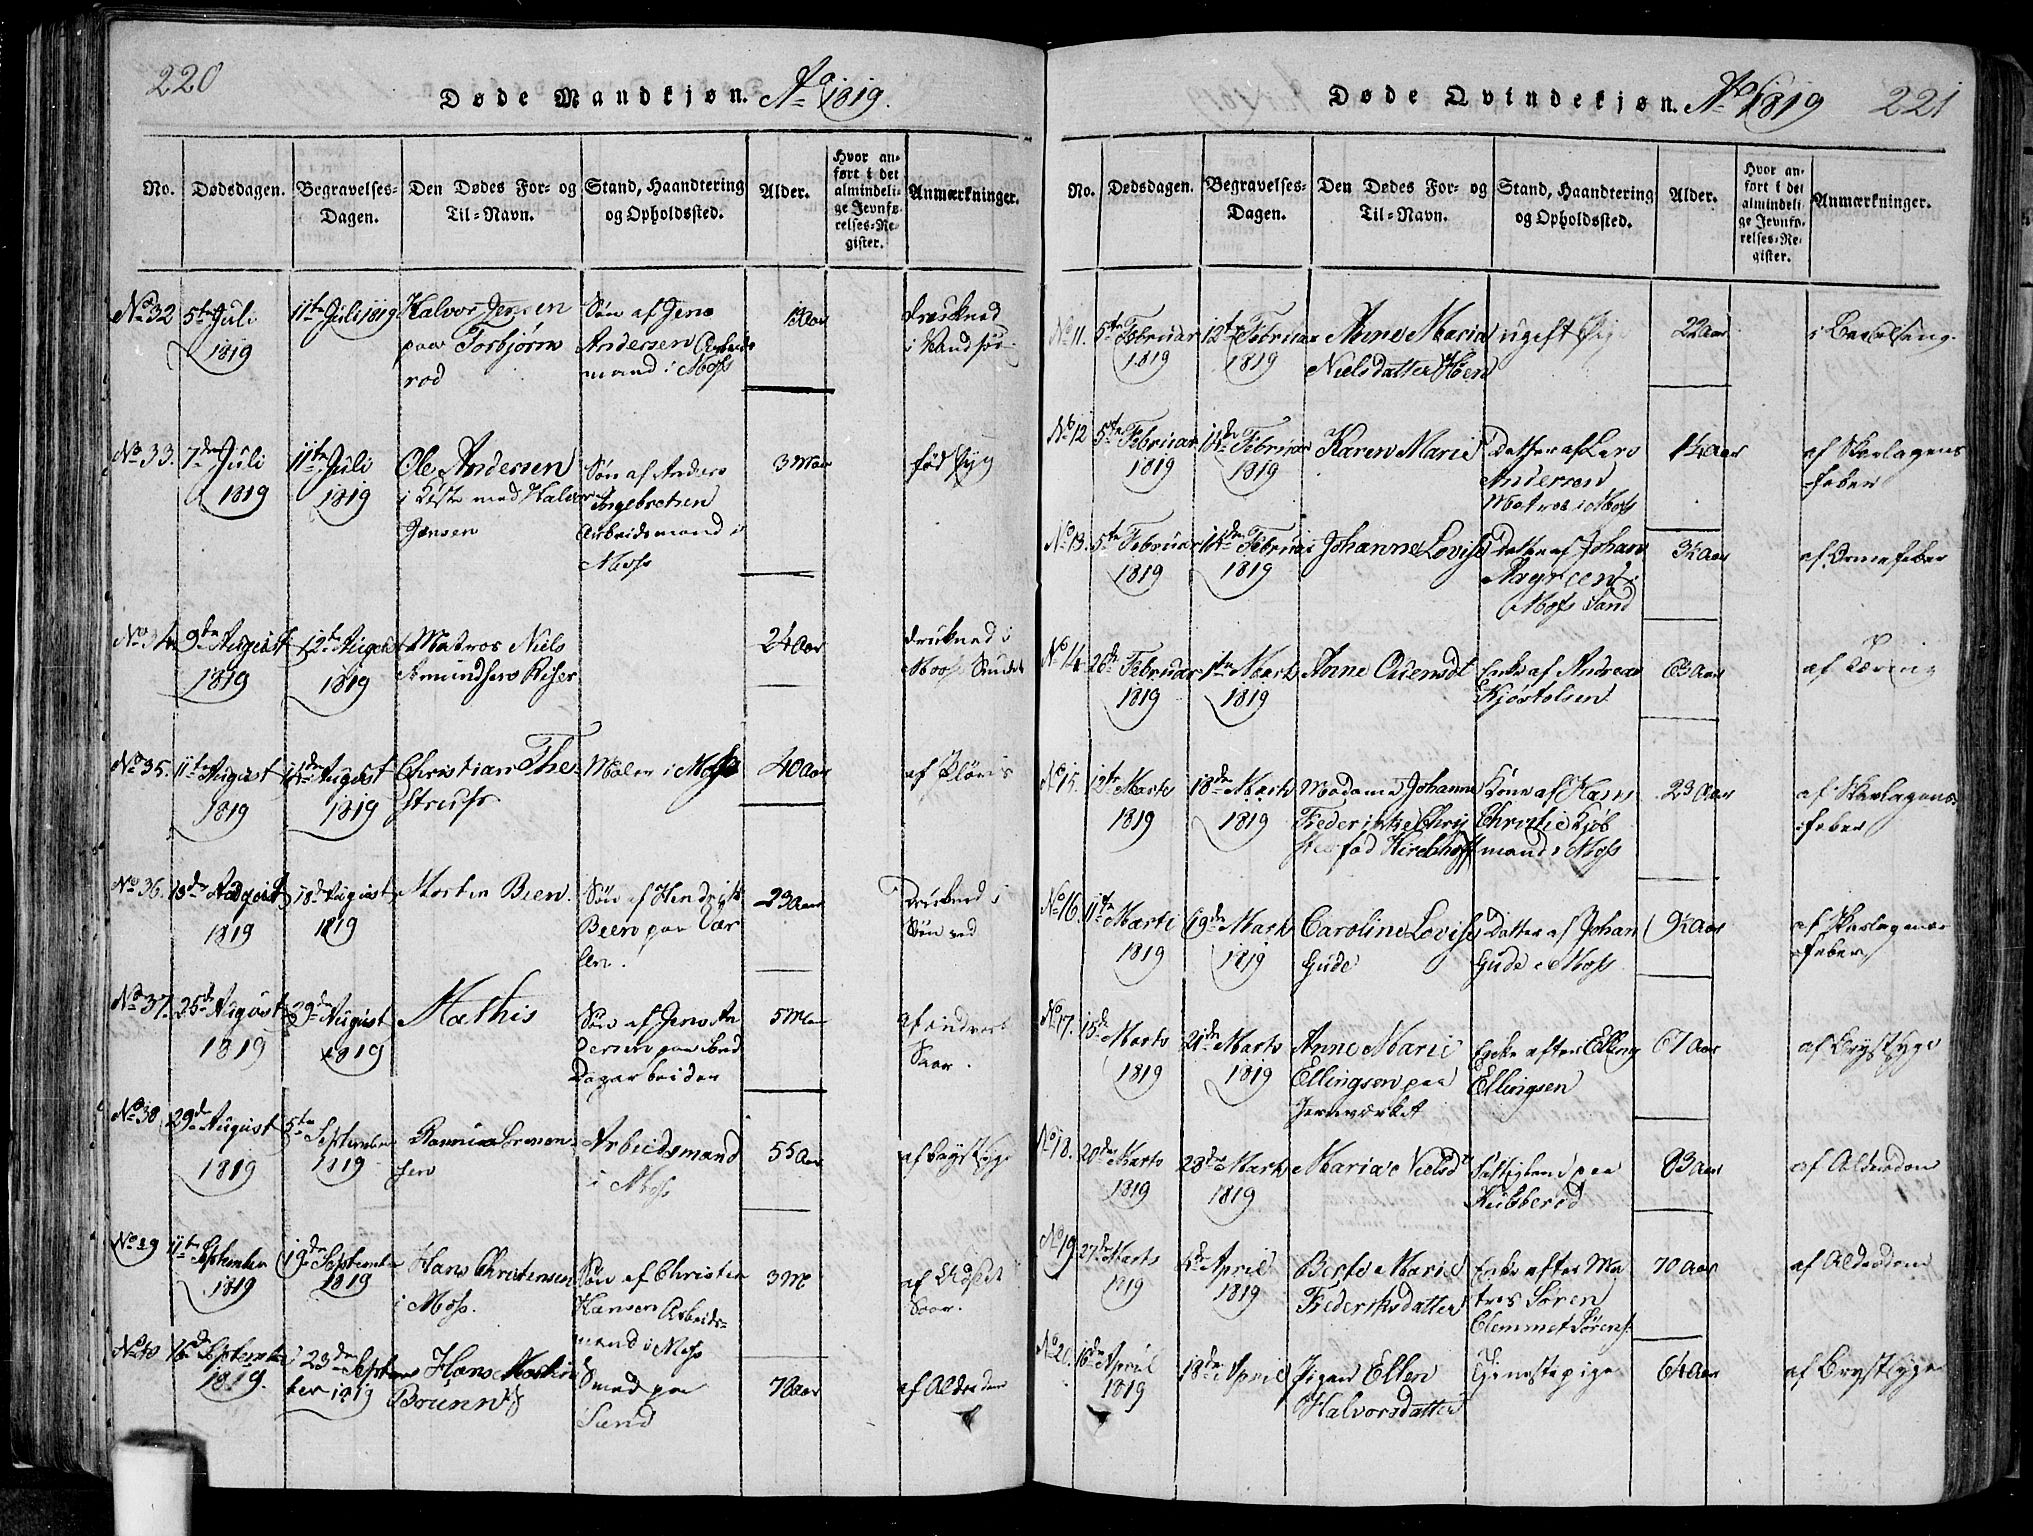 220
Døde Mandkjøn. Ao 1819.
No.
Dødsdagen.
Begravelses-
Dagen.
Den Dødes For- og
Til-Navn.
Stand, Haandtering
og Opholdssted.
Alder.
Hvor an-
ført i det
almindeli-
ge Jevnfø-
relses-Re-
gister.
Anmærkninger.
No 32 5te Juli 11te Juli 1819 Halvor Jensen Søn af Jens Aar drukned
1819 paa Torbjørns Andersen Arbeids i Vandsøe
rød mand i Moss
No 33. 7de Juli 11te Juli Ole Andersen Søn af Anders 3 Mdr fød syg
1819 1819 i Kiste med Halvor Ingebretsen
Jensen Arbeidsmand i
Moss
No 34. 9de August 12te August Matros Niels 24 Aar drukned i
1819 1819 Amundsens Riiser Moss Sundet
No 35. 11te August 14de August Christian The- Maler i Moss 40 Aar af
1819 1819 strup
No 36. 13de August 18de August Morten Been. Søn af Hendrich 23 Aar Drukned i
1819 1819 Been paa Vær Søn ved
len.
No 37. 25de August 29de August Mathis Søn af Jens An 5 M af indvort
1819 1819 dersen paa Saar.
Dagarbeider
No 38 29de August 5te September Arbeidsmand 55 Aar af Brystsyge
1819 1819 sen i Moss
No 39 11te September 19de September Hans Christensen Søn af Christen 3 M af
1819 1819 i Moss. Hansen Arbeids- Saar.
mand i Moss
No 40 16de September 23de Septem Hans Martin Smed paa 78 Aar af Alderdom
1819. ber 1819 Sand
Døde Qvindekjøn. Ao 1819 221
No.
Dødsdagen.
Begravelses-
Dagen.
Den Dødes For- og
Til-Navn.
Stand, Haandtering
og Opholdssted.
Alder.
Hvor an-
ført i det
almindeli-
ge Jevnfø-
relses-Re-
gister.
Anmærkninger.
No 11. 5te Februar 12te Februar Anne Maria ugift 22 Aar i Barselseng.
1819 1819 Nielsdatter
No 12 5te Februar 14de Februar Karen Marie Datter af Lars 1¼ Aar af Skarlagens
1819 1819 Andersen feber
Matros i Moss
No 13. 5te Februar 14de Februar Johanne Lovise Datter af Johan 3½ Aar af Ormefeber
1819 1819 i
Moss Sand
No 14 26de Februar 1te Marts Anne Olensdt Enke af Andreas 63 Aar af Tæring
1819 1819 Kjøstolsen
No 15. 12te Marts 18de Marts Madame Johanne Kone af Hans 23 Aar af Skarlagens
1819 1819 Frederikke Chris Christie Kjøb feber
tie fød Kirchhoff mand i Moss
No 16. 11te Marti 19de Marts Caroline Lovise Datter af Johan 9½ Aar af Skarlagens
1819 1819 Gude Gude i Moss feber
No 17. 15de Marts 21de Marts Anne Marie Enke efter Elling 67 Aar af Brystsyge
1819 1819 Ellingsen paa Ellingsen
Jernværket
No 18. 20de Marts 28de Marts Maria Nielsdt paa 83 Aar af Alderdom
1819 1819 Kubberød
No 19. 27de Marts April Berte Marie Enke efter Ma 70 Aar af Alderdom
1819 1819 Frederiksdatter tros Søren
Clemmet Sørens.
No 20. 16de April 18de April Pigen Ellen Tjenestepige 64 Aar af Brystsyge
1819 Halvorsdatter